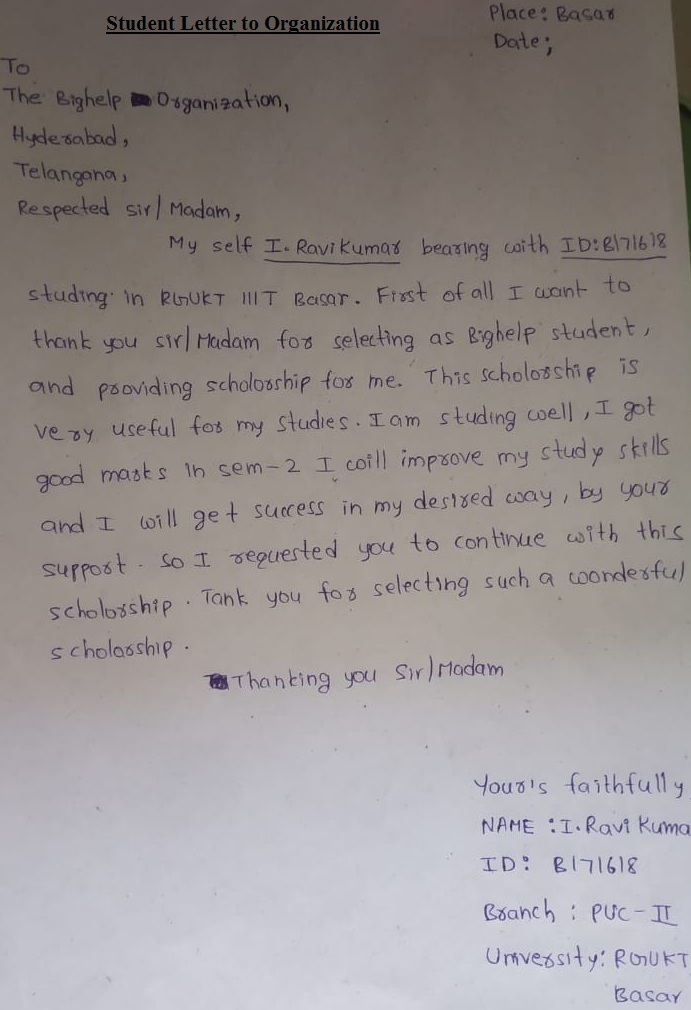 Student Letter to Organization
Place: Basar
Date;
To
The Bighelp Organization,
Hyderabad,
Telangana,
Respected sir/Madam,
My self I. Ravi Kumar bearing with ID:B171618
studing in RGUKT IIIT Basar. First of all I want to
thank you sir/Madam for selecting as Bighelp student,
and providing scholorship for me. This scholorship is
very useful for my studies. I am studing well, I got
good marks in sem-2 I will improve my study skills
and I will get success in my desired way, by your
support. So I requested you to continue with this
scholorship. Tank you for selecting such a woonderful
scholarship.
Thanking you Sir/Madam
Your's faithfully
NAME : I. Ravi Kuma
ID: B171618
Branch : PUC-II
University: RGUKT
Basar